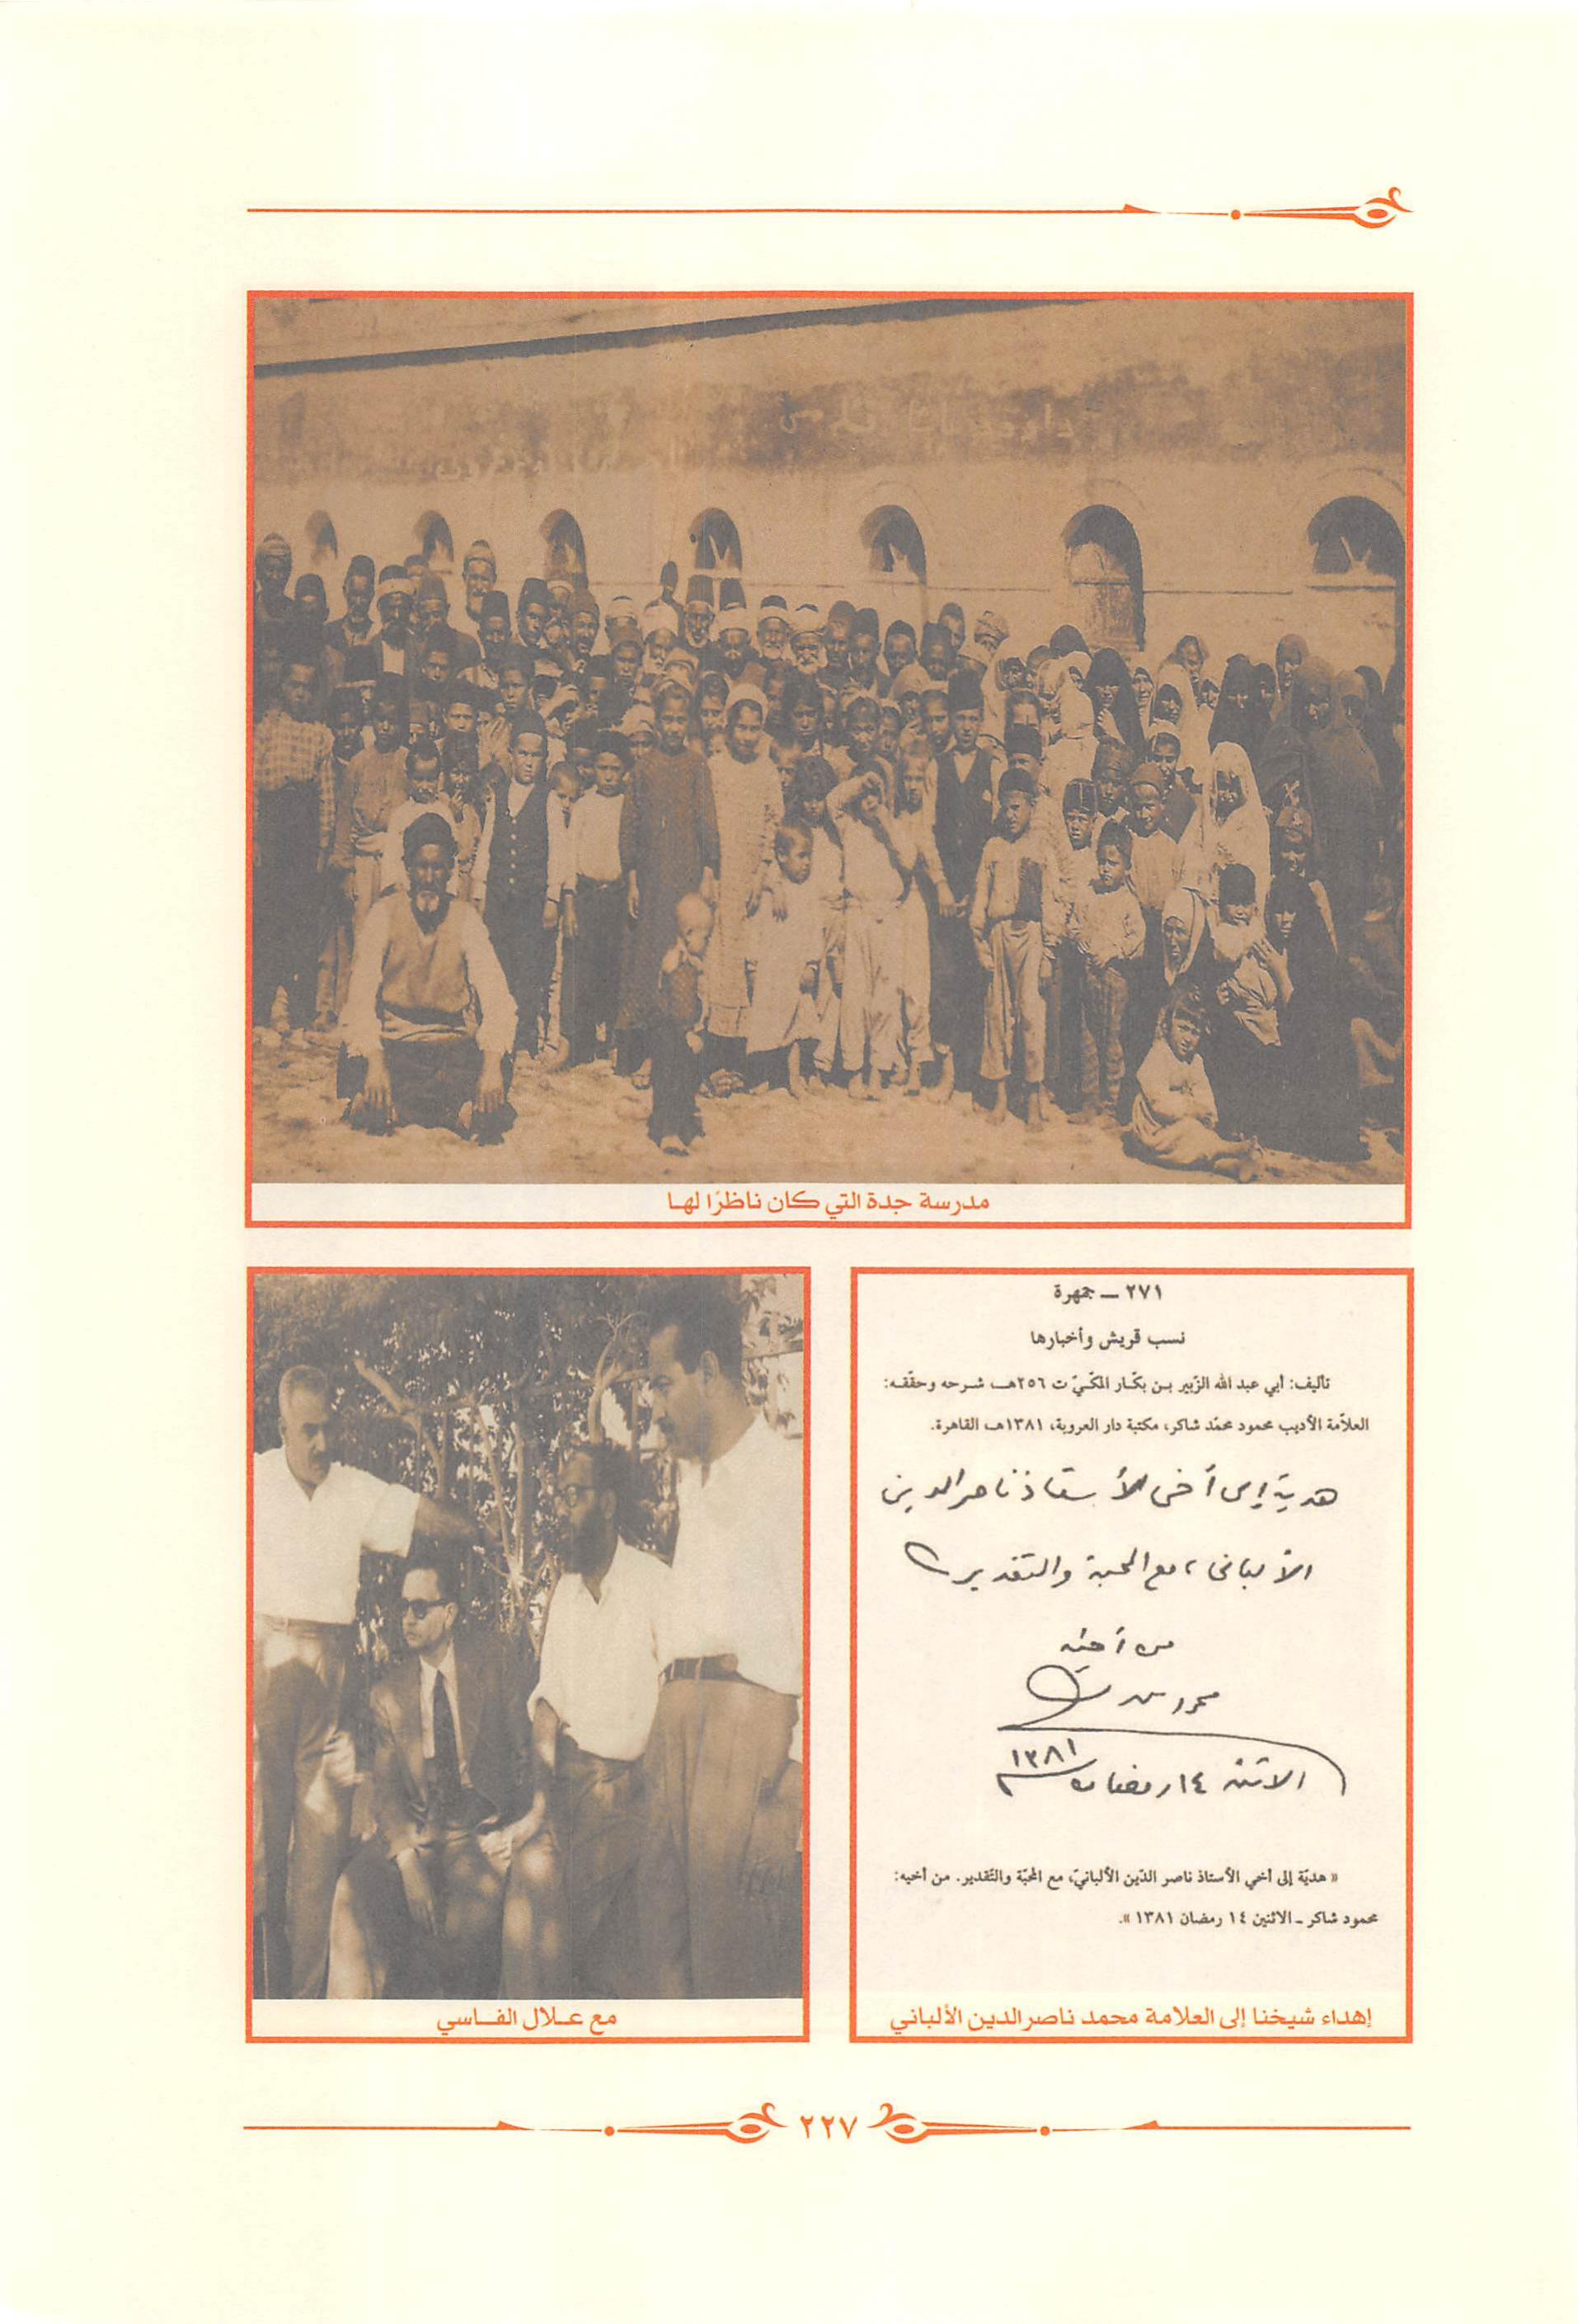 مدرسة جدة التي كان ناظرًا لها
٢٧١ ــ جمهرة
نسب قريش وأخبارها
تأليف: أبي عبد الله الزّبير بـن بكّـار المكّـيّ ت ٢٥٦هـ، شـرحه وحقّقـه:
العلاّمة الأديب محمود محمّد شاكر، مكتبة دار العروبة، ١٣٨١هـ، القاهرة.
هدية إلى أخى الأستاذ ناصر الدين
الألبانى ، مع المحبة والتقدير
من أخيه
محمود شاكر
الاثنين ١٤ رمضان ١٣٨١
« هديّة إلى أخي الأستاذ ناصر الدّين الألبانيّ، مع المحبّة والتّقدير. من أخيه:
محمود شاكر ـ الاثنين ١٤ رمضان ١٣٨١ ».
إهداء شيخنا إلى العلامة محمد ناصر الدين الألباني
مع عـلال الفـــاسي
٢٢٧